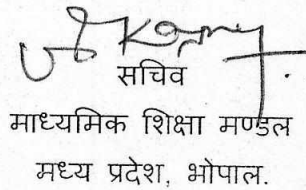 सचिव
माध्यमिक शिक्षा मण्डल
मध्य प्रदेश, भोपाल.